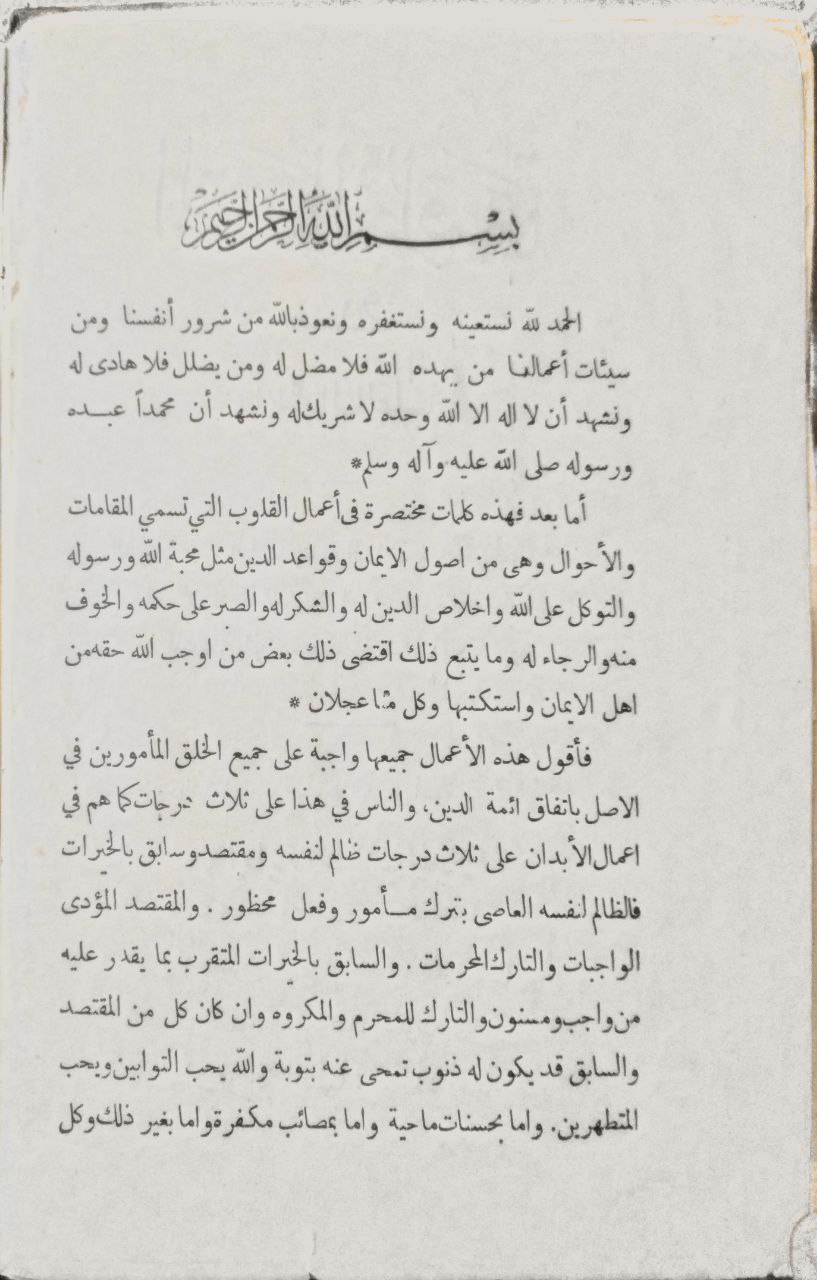 بسم الله الرحمن الرحيم
الحمد لله نستعينه ونستغفره ونعوذ بالله من شرور أنفسنا ومن
سيئات أعمالنا من يهده الله فلا مضل له ومن يضلل فلا هادى له
ونشهد أن لا اله الا الله وحده لا شريك له ونشهد أن محمداً عبده
ورسوله صلى الله عليه وآله وسلم*
أما بعد فهذه كلمات مختصرة فى أعمال القلوب التي تسمي المقامات
والأحوال وهى من اصول الايمان وقواعد الدين مثل محبة الله ورسوله
والتوكل على الله واخلاص الدين له والشكر له والصبر على حكمه والخوف
منه والرجاء له وما يتبع ذلك اقتضى ذلك بعض من اوجب الله حقه من
اهل الايمان واستكتبها وكل منا عجلان *
فأقول هذه الأعمال جميعها واجبة على جميع الخلق المأمورين في
الاصل باتفاق ائمة الدين، والناس في هذا على ثلاث درجات كما هم في
اعمال الأبدان على ثلاث درجات ظالم لنفسه ومقتصد وسابق بالخيرات
فالظالم لنفسه العاصى بترك مأمور وفعل محظور . والمقتصد المؤدى
الواجبات والتارك المحرمات . والسابق بالخيرات المتقرب بما يقدر عليه
من واجب ومسنون والتارك للمحرم والمكروه وان كان كل من المقتصد
والسابق قد يكون له ذنوب تمحى عنه بتوبة والله يحب التوابين ويحب
المتطهرين. واما بحسنات ماحية واما بمصائب مكفرة واما بغير ذلك وكل